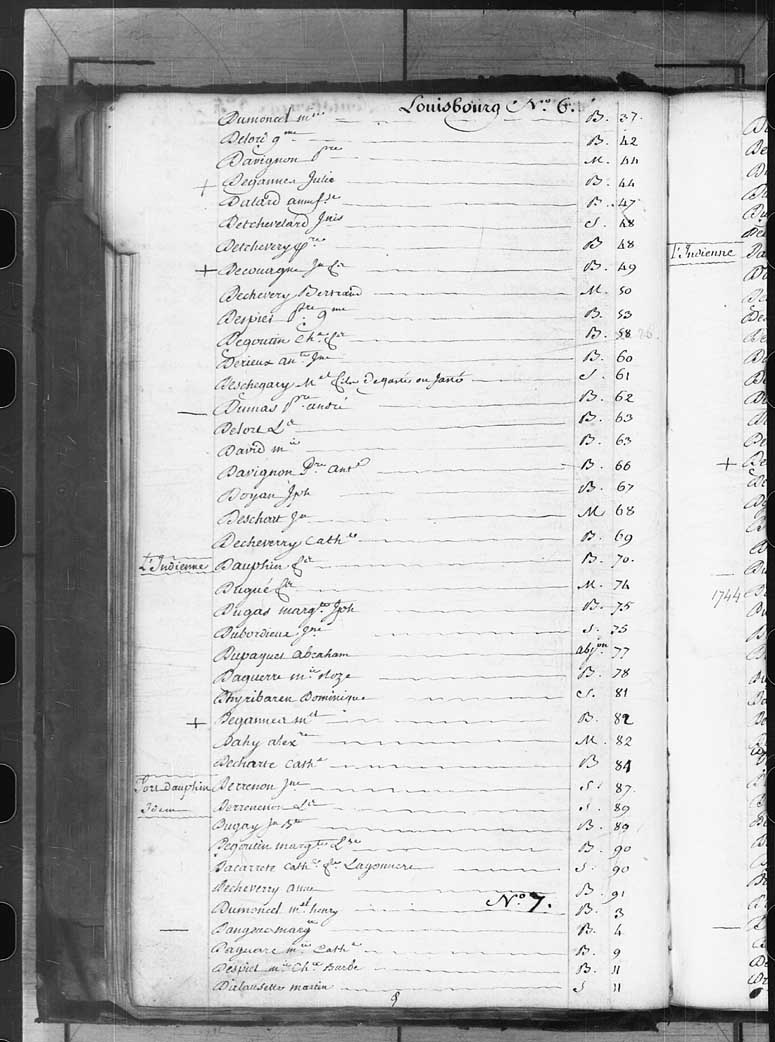 Louisbourg No. 6.
Dumoncel mie B. 37.
Delort gme B. 42
Davignon pre M. 44
+ Degannes Julie B. 44
Dalard anne fse B. 47
Detcheverry Jnis S. 48
Detchevery pre B 48
+ Decouagne Jn Bte B. 49
Dechevery Bertrand M. 50
Despiet pre gme B. 53
Degoutin Che B. 58
Derieux ane Jne B. 60
Deschegary Mel S. 61
Dumas pre andré B. 62
Delort Le B. 63
David mie B. 63
Davignon Pre ante B. 66
Doyan Jph B. 67
Deschart Jn M. 68
Decheverry Cathe B. 69
L'Indienne Dauphin B. 70.
Dugué M. 74
Dugas margte Jph B. 75
Dubordieux Jne S. 75
Dupaques abraham abjon 77
Daguerre mie Roze B. 78
Dhyribaren Dominique S. 81
+ Degannes mel B. 82
Dahy alexre M. 82
Decharte Cathe B 84
Port Dauphin Derrenon Jne S. 87.
Idem Derrenenon S. 89
Dugay Jn Bte B. 89
Degoutin margte B. 90
Dacarrete Cathe Lagonnere S. 90
Decheverry anne B. 91
No. 7.
Dumoncel mel henry B. 3
Dangeac margte B. 4
Daguerre mie Cathe B. 9
Despiet mie Che Barbe B. 11
Dalausette martin S 11
L'Indienne
+
1744